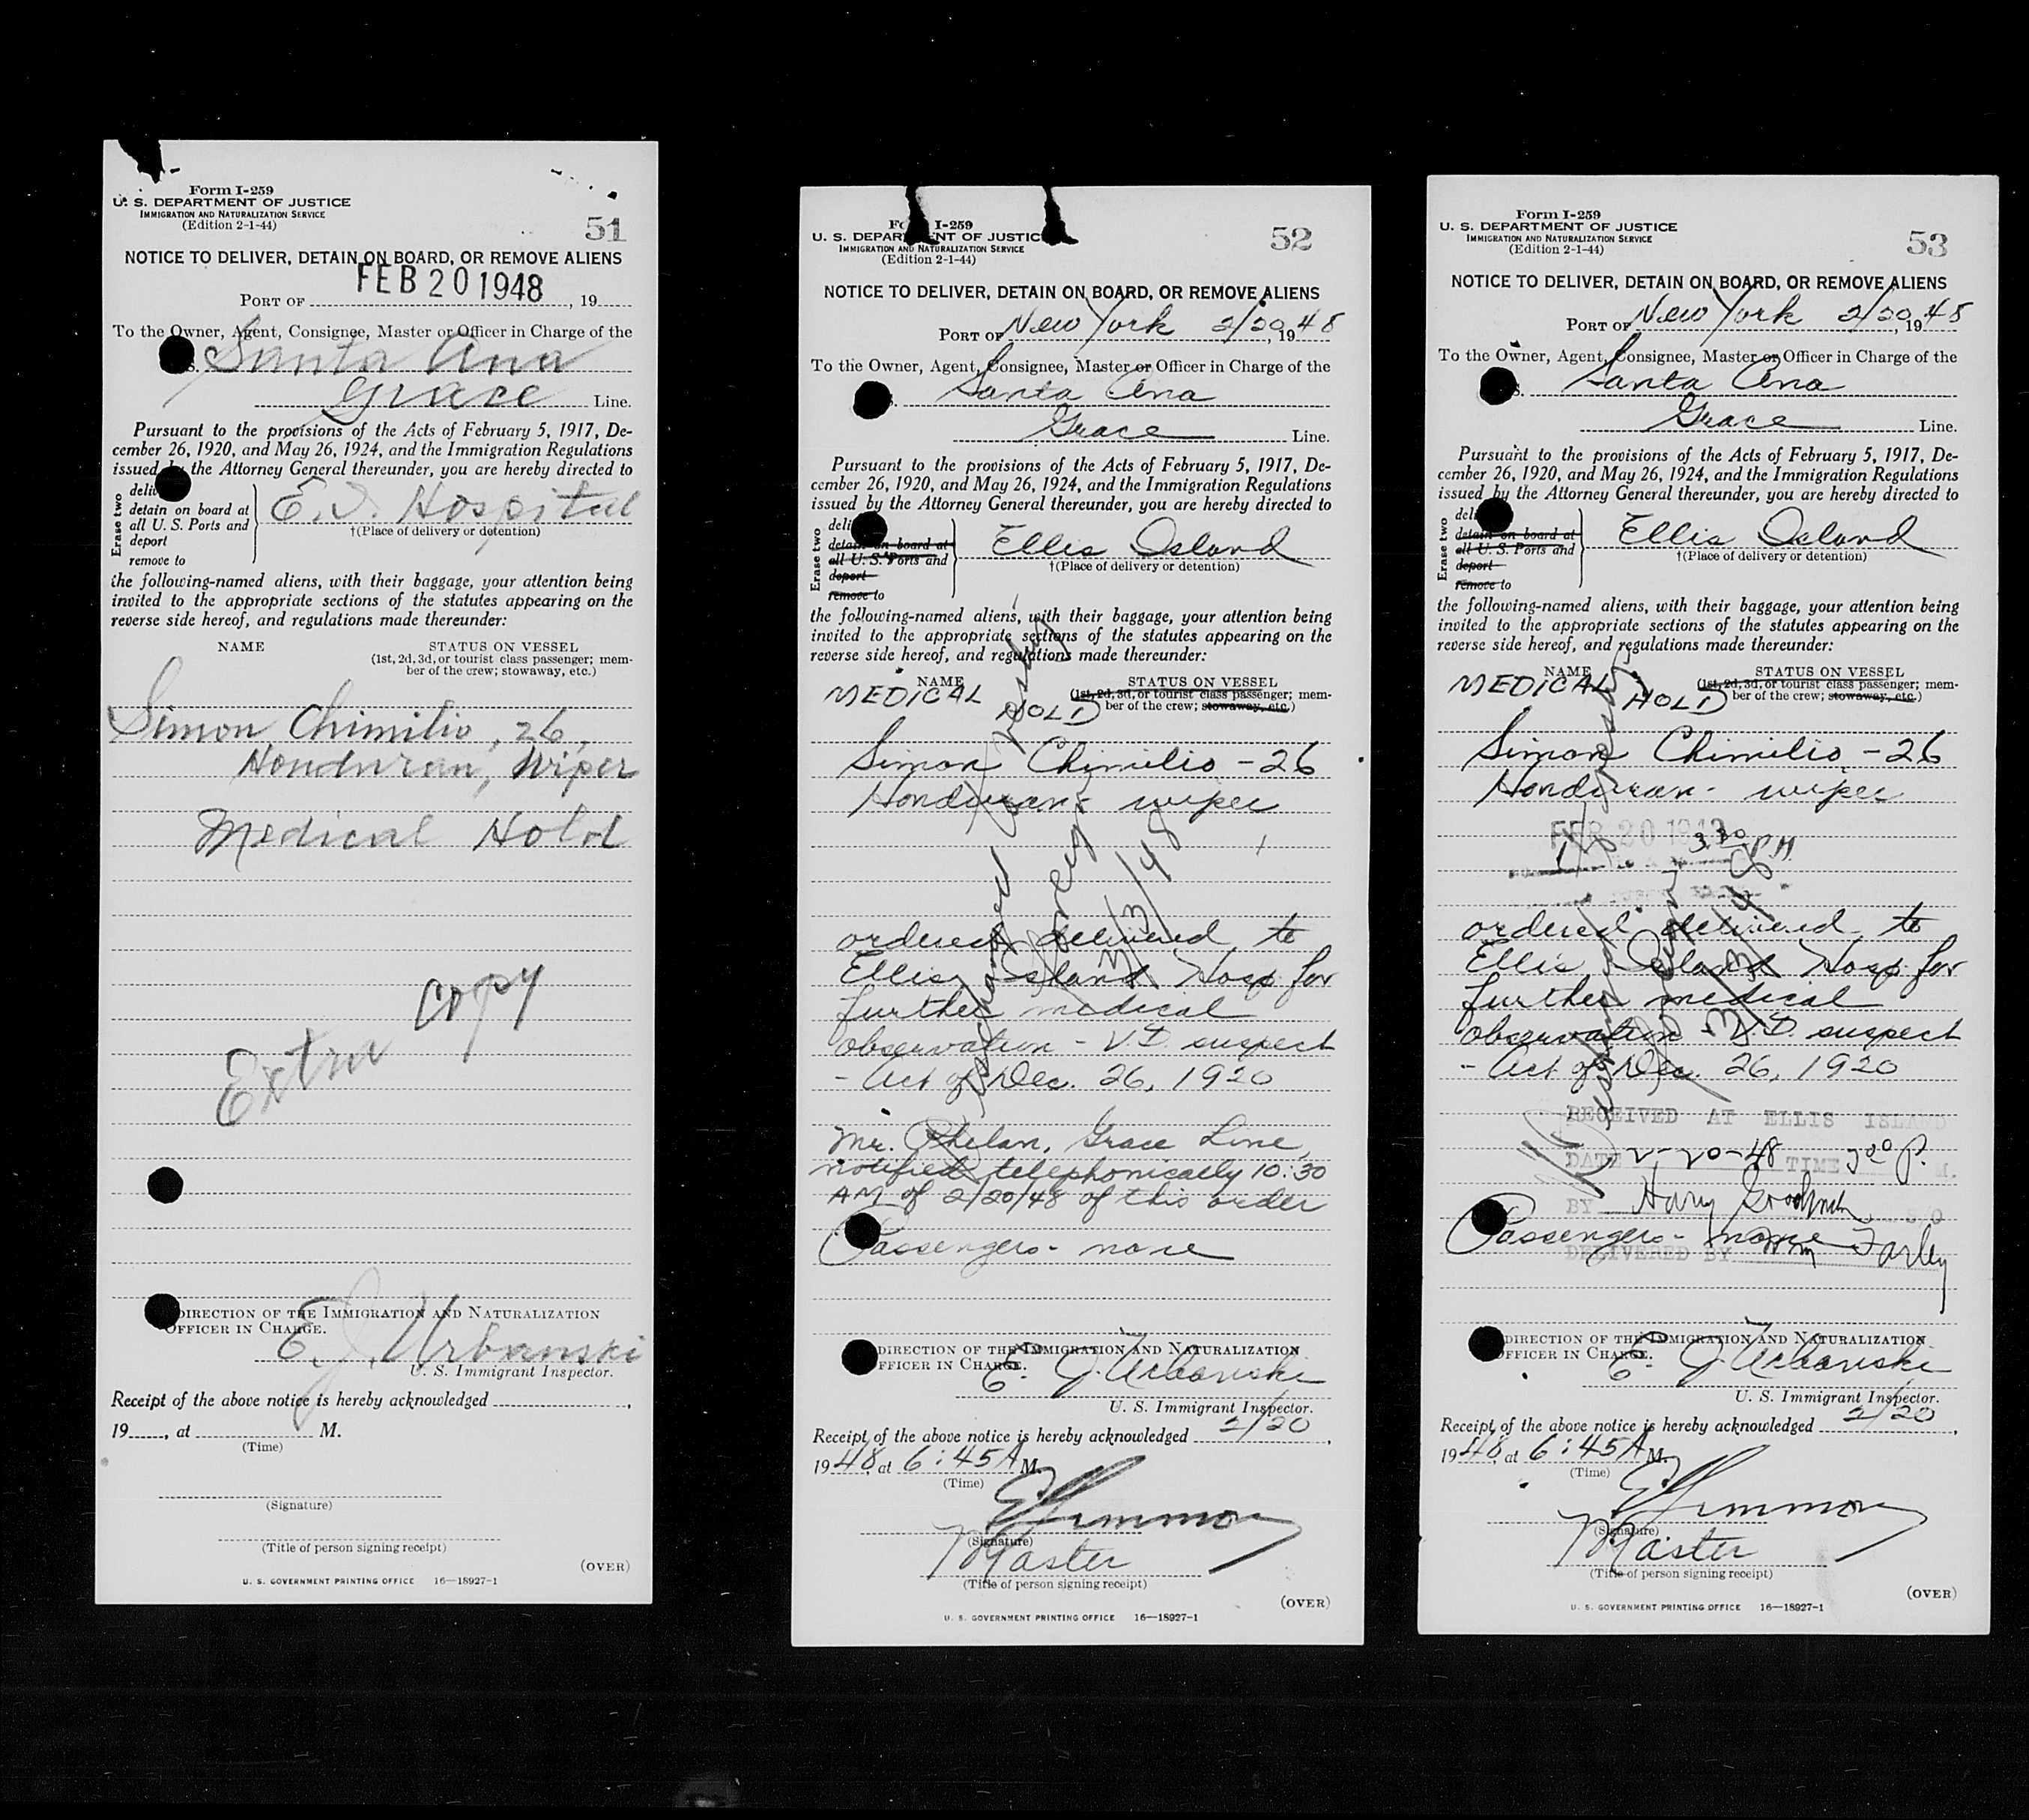 Form I-259
U. S. DEPARTMENT OF JUSTICE
IMMIGRATION AND NATURALIZATION SERVICE
(Edition 2-1-44)
51
NOTICE TO DELIVER, DETAIN ON BOARD, OR REMOVE ALIENS
FEB 20 1948
PORT OF , 19
To the Owner, Agent, Consignee, Master or Officer in Charge of the
Santa Ana
Grace Line.
Pursuant to the provisions of the Acts of February 5, 1917, De-
cember 26, 1920, and May 26, 1924, and the Immigration Regulations
issued by the Attorney General thereunder, you are hereby directed to
Erase two
deli
detain on board at
all U. S. Ports and
deport
remove to
E. I. Hospital
†(Place of delivery or detention)
the following-named aliens, with their baggage, your attention being
invited to the appropriate sections of the statutes appearing on the
reverse side hereof, and regulations made thereunder:
NAME STATUS ON VESSEL
(1st, 2d, 3d, or tourist class passenger; mem-
ber of the crew; stowaway, etc.)
Simon Chimilio, 26,
Honduran, Wiper
Medical Hold
Extra copy
DIRECTION OF THE IMMIGRATION AND NATURALIZATION
OFFICER IN CHARGE.
E. J. Urbanski
U. S. Immigrant Inspector.
Receipt of the above notice is hereby acknowledged ,
19 , at M.
(Time)
(Signature)
(Title of person signing receipt)
(OVER)
U. S. GOVERNMENT PRINTING OFFICE 16—18927-1
Form I-259
U. S. DEPARTMENT OF JUSTICE
IMMIGRATION AND NATURALIZATION SERVICE
(Edition 2-1-44)
52
NOTICE TO DELIVER, DETAIN ON BOARD, OR REMOVE ALIENS
PORT OF New York 2/20, 1948
To the Owner, Agent, Consignee, Master or Officer in Charge of the
Santa Ana
Grace Line.
Pursuant to the provisions of the Acts of February 5, 1917, De-
cember 26, 1920, and May 26, 1924, and the Immigration Regulations
issued by the Attorney General thereunder, you are hereby directed to
Erase two
deli
detain on board at
all U. S. Ports and
deport
remove to
Ellis Island
†(Place of delivery or detention)
the following-named aliens, with their baggage, your attention being
invited to the appropriate sections of the statutes appearing on the
reverse side hereof, and regulations made thereunder:
NAME STATUS ON VESSEL
(1st, 2d, 3d, or tourist class passenger; mem-
ber of the crew; stowaway, etc.)
MEDICAL HOLD
Simon Chimilio - 26
Honduran - wiper
1
3/3/48
ordered delivered to
Ellis Island Hosp for
further medical
observation - V D. suspect
- Act of Dec. 26, 1920
Mr. Phelan, Grace Line,
notified telephonically 10:30
AM of 2/20/48 of this order
Passengers - none
DIRECTION OF THE IMMIGRATION AND NATURALIZATION
OFFICER IN CHARGE.
E. J. Urbanski
U. S. Immigrant Inspector.
Receipt of the above notice is hereby acknowledged 2/20,
1948, at 6:45 A M.
(Time)
(Signature)
Master
(Title of person signing receipt)
(OVER)
U. S. GOVERNMENT PRINTING OFFICE 16—18927-1
Form I-259
U. S. DEPARTMENT OF JUSTICE
IMMIGRATION AND NATURALIZATION SERVICE
(Edition 2-1-44)
53
NOTICE TO DELIVER, DETAIN ON BOARD, OR REMOVE ALIENS
PORT OF New York 2/20, 1948
To the Owner, Agent, Consignee, Master or Officer in Charge of the
Santa Ana
Grace Line.
Pursuant to the provisions of the Acts of February 5, 1917, De-
cember 26, 1920, and May 26, 1924, and the Immigration Regulations
issued by the Attorney General thereunder, you are hereby directed to
Erase two
deli
detain on board at
all U. S. Ports and
deport
remove to
Ellis Island
†(Place of delivery or detention)
the following-named aliens, with their baggage, your attention being
invited to the appropriate sections of the statutes appearing on the
reverse side hereof, and regulations made thereunder:
NAME STATUS ON VESSEL
(1st, 2d, 3d, or tourist class passenger; mem-
ber of the crew; stowaway, etc.)
MEDICAL HOLD
Simon Chimilio - 26
Honduran - wiper
FEB 20 1948
3:30 PM
3/3/48
ordered delivered to
Ellis Island Hosp for
further medical
observation - V.D. suspect
- Act of Dec. 26, 1920
RECEIVED AT ELLIS ISLAND
DATE 2-20-48 TIME P. M.
BY Harry
Passengers - none
DELIVERED BY Farley
DIRECTION OF THE IMMIGRATION AND NATURALIZATION
OFFICER IN CHARGE.
E. J. Urbanski
U. S. Immigrant Inspector.
Receipt of the above notice is hereby acknowledged 2/20,
1948, at 6:45 A M.
(Time)
(Signature)
Master
(Title of person signing receipt)
(OVER)
U. S. GOVERNMENT PRINTING OFFICE 16—18927-1